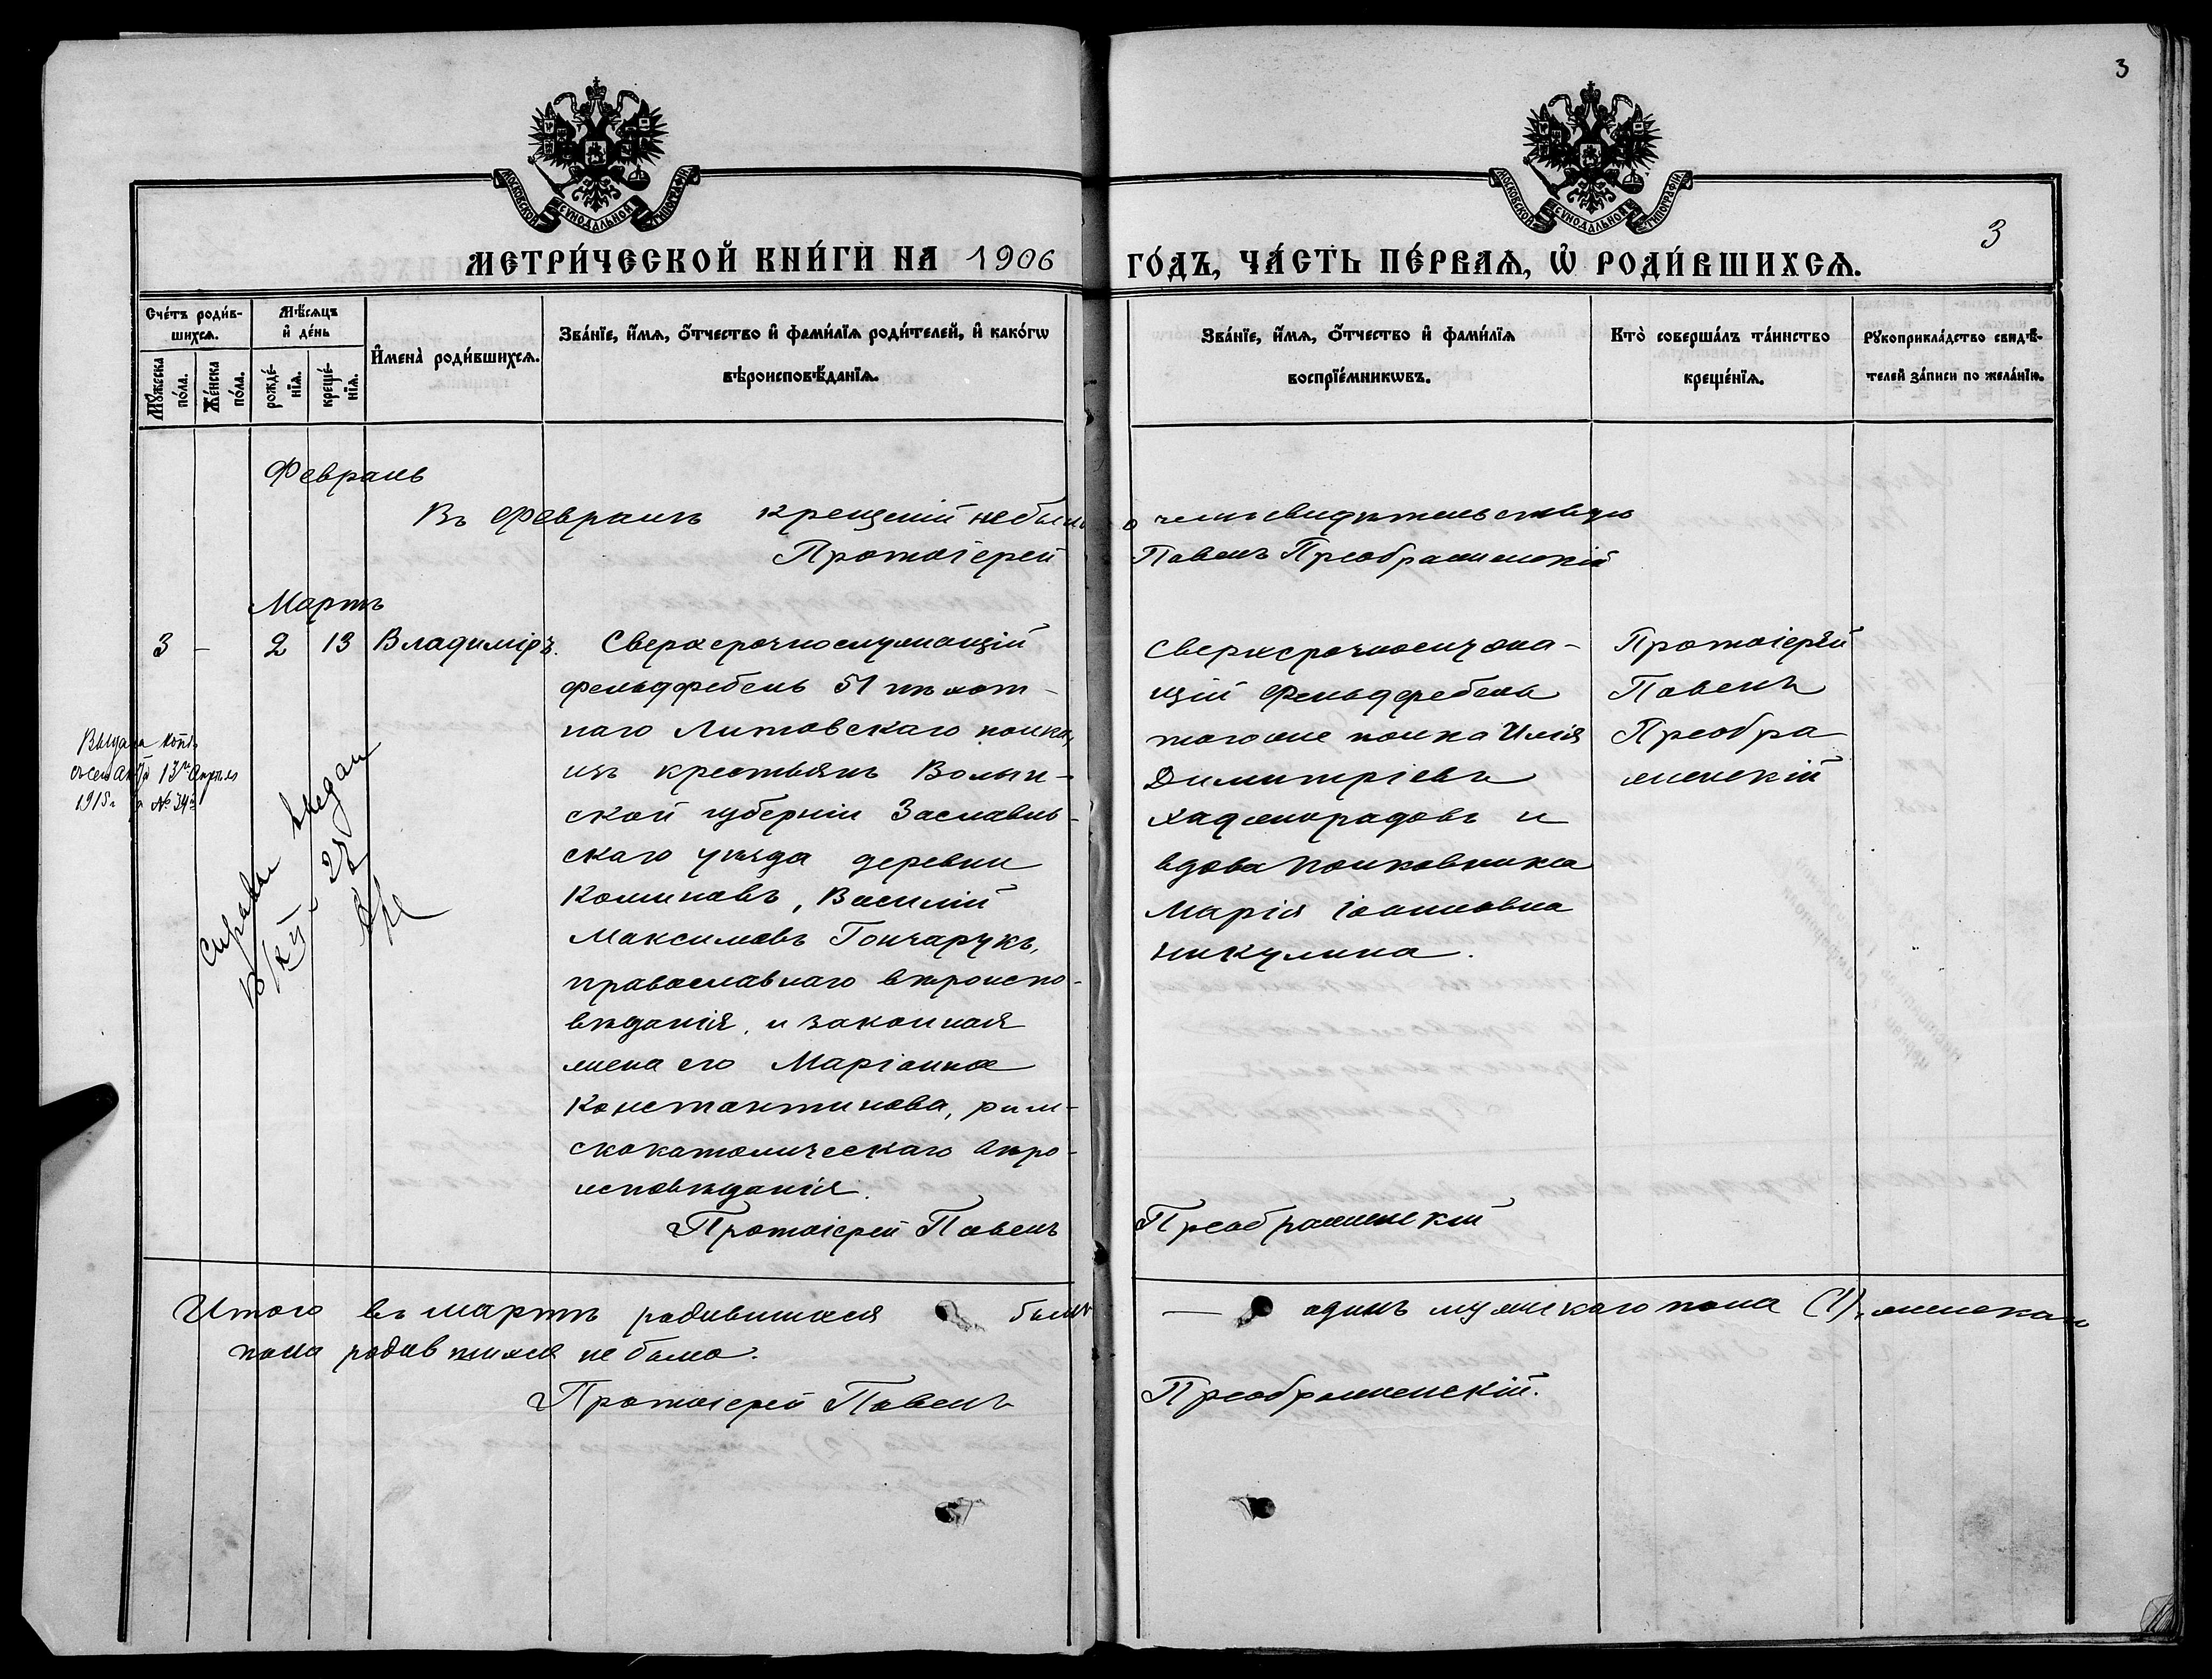 3
МОСКОВСКОЙ СѴНОДАЛЬНОЙ ТИПОГРАФІИ
МОСКОВСКОЙ СѴНОДАЛЬНОЙ ТИПОГРАФІИ
3
МЕТРИ́ЧЕСКОЙ КНИ́ГИ НА 1906 ГО́ДЪ, ЧА́СТЬ ПЕ́РВАѦ, Ѡ҆ РОДИ́ВШИХСѦ.
Сче́тъ роди́в-
шихсѧ.
Мꙋ́жеска
по́ла.
Же́нска
по́ла.
Мѣ́сѧцъ
и҆ де́нь
рожде́-
нїѧ.
креще́-
нїѧ.
И҆мена̀ роди́вшихсѧ.
Зва́нїе, и҆́мѧ, ѻ҆́тчество и҆ фами́лїѧ роди́телей, и҆ како́гѡ
вѣроисповѣ́данїѧ.
Зва́нїе, и҆́мѧ, ѻ҆́тчество и҆ фами́лїѧ
воспрїе́мникѡвъ.
Кто̀ соверша́лъ та́инство
креще́нїѧ.
Рꙋкоприкла́дство свидѣ́-
телей за́писи по жела́нїю.
Февраль
Въ Февралѣ крещеній не было о чемъ свидѣтельствую
Протоіерей Павелъ Преображенскій
Мартъ
3 - 2 13 Владиміръ.
Сверхсрочнослужащій
фельдфебель 51 пѣхот-
наго Литовскаго полка,
изъ крестьянъ Волын-
ской губерніи Заславль-
скаго уѣзда деревни
Коминовъ, Василій
Максимовъ Гончарукъ,
православнаго вѣроиспо-
вѣданія, и законная
жена его Маріанна
Константинова, рим-
скокатолическаго вѣро-
исповѣданія.
Протоіерей Павелъ Преображенскій
Сверхсрочнослужа-
щій Фельдфебель
того же полка Илія
Димитріевъ
Хаджирадовъ и
вдова Полковника
Марія Іоанновна
Никулина.
Протоіерей
Павелъ
Преобра
женскій
Выдана копія
съ сей 13го Апрѣля
1915г за №
Справка выдан
Итого въ мартѣ родившихся былъ — одинъ мужскаго пола (1), женскаго
пола родившихся не было.
Протоіерей Павелъ Преображенскій.